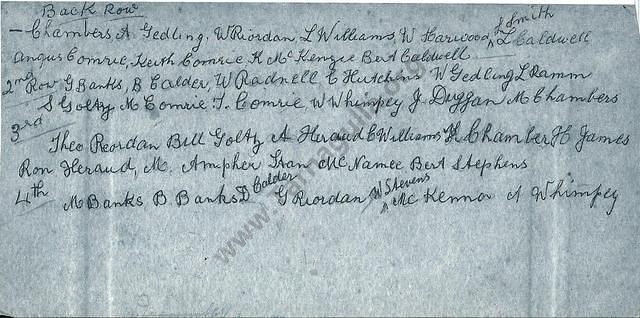 Back Row
— Chambers, A Gedling, W Riordan L Williams, W Harwood, L Smith L Caldwell
Angus Comrie, Keith Comrie K McKenzie Bert Caldwell
2nd Row G Banks, B Calder, W Radnell C Hutchins W Gedling L Ramm
S Goltz M Comrie T. Comrie W Whimpey J. Duggan M Chambers
3rd
Theo Reordan Bill Goltz A Heraud C Williams H Chamber H James
Ron Heraud, M. Ampher Stan McNamee Bert Stephens
4th
M Banks B Banks D Calder G Riordan W Stevens McKenna A Whimpey